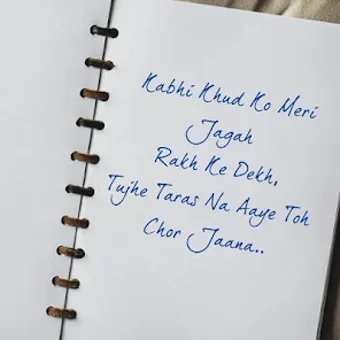 Kabhi Khud Ko Meri
Jagah
Rakh Ke Dekh,
Tujhe Taras Na Aaye Toh
Chor Jaana..